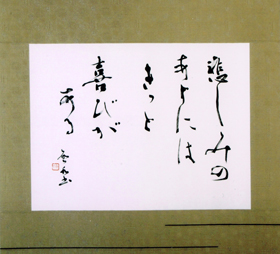 悲しみの
あとには
きっと
喜びが
ある